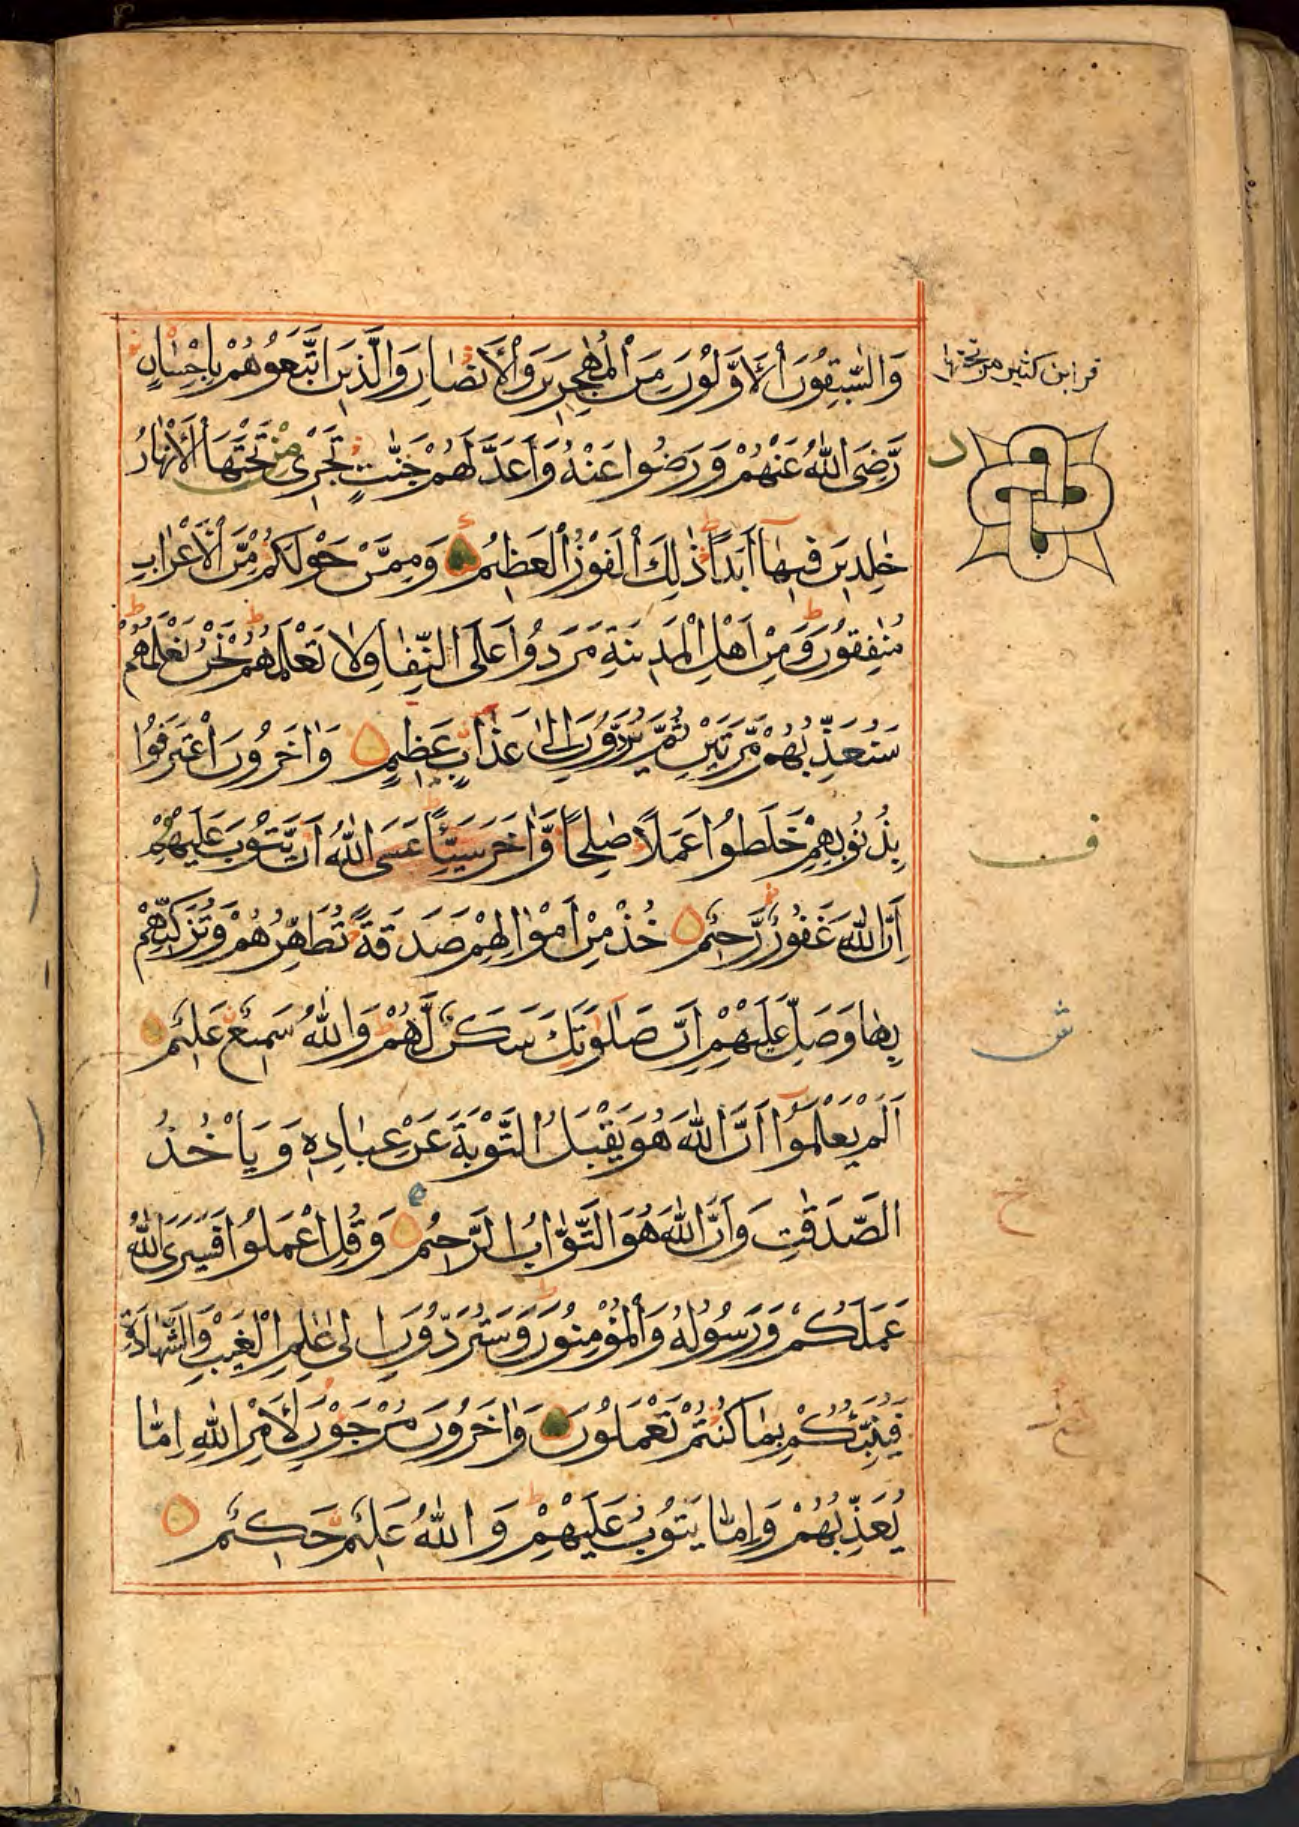 وَالسّٰبِقُوْنَ الْاَوَّلُوْنَ مِنَ الْمُهٰجِرِيْنَ وَالْاَنْصَارِ وَالَّذِيْنَ اتَّبَعُوْهُمْ بِاِحْسَانٍ
رَّضِيَ اللّٰهُ عَنْهُمْ وَرَضُوْا عَنْهُ وَاَعَدَّ لَهُمْ جَنّٰتٍ تَجْرِيْ مِنْ تَحْتَهَا الْاَنْهَارُ
خٰلِدِيْنَ فِيْهَا اَبَدًا ذٰلِكَ الْفَوْزُ الْعَظِيْمُ وَمِمَّنْ حَوْلَكُمْ مِّنَ الْاَعْرَابِ
مُنٰفِقُوْنَ وَمِنْ اَهْلِ الْمَدِيْنَةِ مَرَدُوْا عَلَى النِّفَاقِ لَا تَعْلَمُهُمْ نَحْنُ نَعْلَمُهُمْ
سَنُعَذِّبُهُمْ مَّرَّتَيْنِ ثُمَّ يُرَدُّوْنَ اِلٰى عَذَابٍ عَظِيْمٍ وَاٰخَرُوْنَ اعْتَرَفُوْا
بِذُنُوْبِهِمْ خَلَطُوْا عَمَلًا صٰلِحًا وَّاٰخَرَ سَيِّئًا عَسَى اللّٰهُ اَنْ يَّتُوْبَ عَلَيْهِمْ
اِنَّ اللّٰهَ غَفُوْرٌ رَّحِيْمٌ خُذْ مِنْ اَمْوَالِهِمْ صَدَقَةً تُطَهِّرُهُمْ وَتُزَكِّيْهِمْ
بِهَا وَصَلِّ عَلَيْهِمْ اِنَّ صَلٰوتَكَ سَكَنٌ لَّهُمْ وَاللّٰهُ سَمِيْعٌ عَلِيْمٌ
اَلَمْ يَعْلَمُوْا اَنَّ اللّٰهَ هُوَ يَقْبَلُ التَّوْبَةَ عَنْ عِبَادِهٖ وَيَاْخُذُ
الصَّدَقٰتِ وَاَنَّ اللّٰهَ هُوَ التَّوَّابُ الرَّحِيْمُ وَقُلِ اعْمَلُوْا فَسَيَرَى اللّٰهُ
عَمَلَكُمْ وَرَسُوْلُهٗ وَالْمُؤْمِنُوْنَ وَسَتُرَدُّوْنَ اِلٰى عٰلِمِ الْغَيْبِ وَالشَّهَادَةِ
فَيُنَبِّئُكُمْ بِمَا كُنْتُمْ تَعْمَلُوْنَ وَاٰخَرُوْنَ مُرْجَوْنَ لِاَمْرِ اللّٰهِ اِمَّا
يُعَذِّبُهُمْ وَاِمَّا يَتُوْبُ عَلَيْهِمْ وَاللّٰهُ عَلِيْمٌ حَكِيْمٌ
قرا ابن كثير من تحتها
د
ف
ش
ح